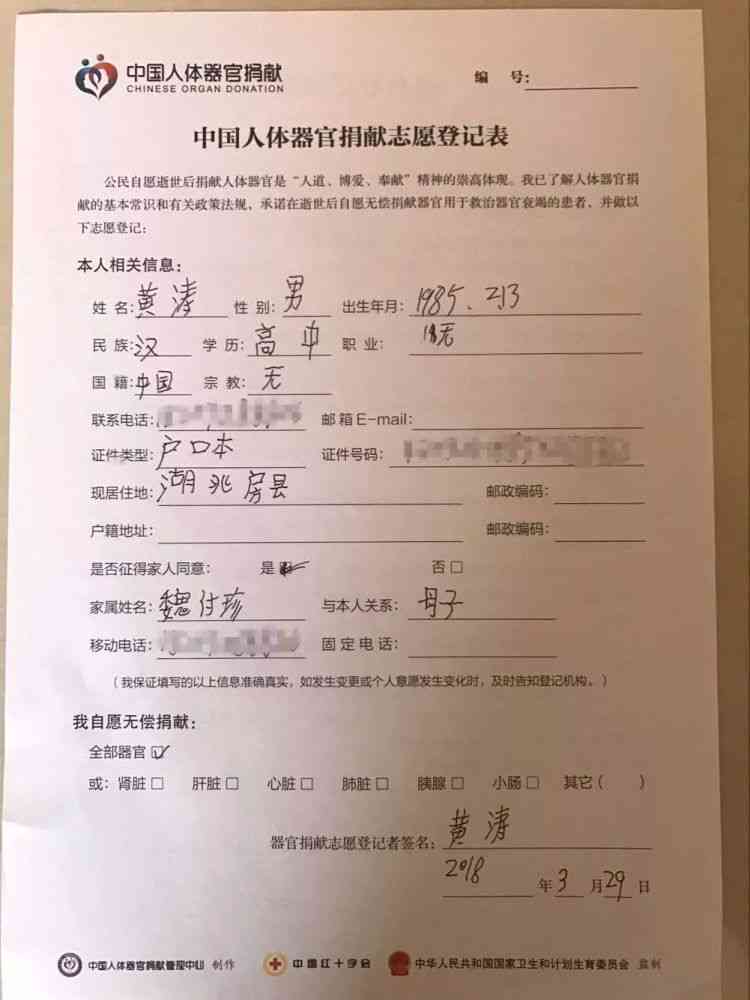 中国人体器官捐献
CHINESE ORGAN DONATION
编 号:
中国人体器官捐献志愿登记表
公民自愿逝世后捐献人体器官是“人道、博爱、奉献”精神的崇高体现。我已了解人体器官捐
献的基本常识和有关政策法规，承诺在逝世后自愿无偿捐献器官用于救治器官衰竭的患者，并做以
下志愿登记：
本人相关信息：
姓 名: 黄涛 性 别: 男 出生年月: 1985、213
民 族: 汉 学 历: 高中 职 业: 无
国 籍: 中国 宗 教: 无
联系电话: 邮 箱 E-mail:
证件类型: 户口本 证件号码:
现居住地: 湖北房县 邮政编码:
户籍地址: 邮政编码:
是否征得家人同意： 是 否 □
家属姓名: 魏付珍 与本人关系: 母子
移动电话: 固 定 电 话:
（我保证填写的以上信息准确真实，如发生变更或个人意愿发生变化时，及时告知登记机构。）
我自愿无偿捐献：
全部器官 ☑
或： 肾脏 □ 肝脏 □ 心脏 □ 肺脏 □ 胰腺 □ 小肠 □ 其它（ ）
器官捐献志愿登记者签名: 黄涛
2018 年 3 月 29 日
中国人体器官捐献管理中心 制作 中国红十字会 中华人民共和国国家卫生和计划生育委员会 监制